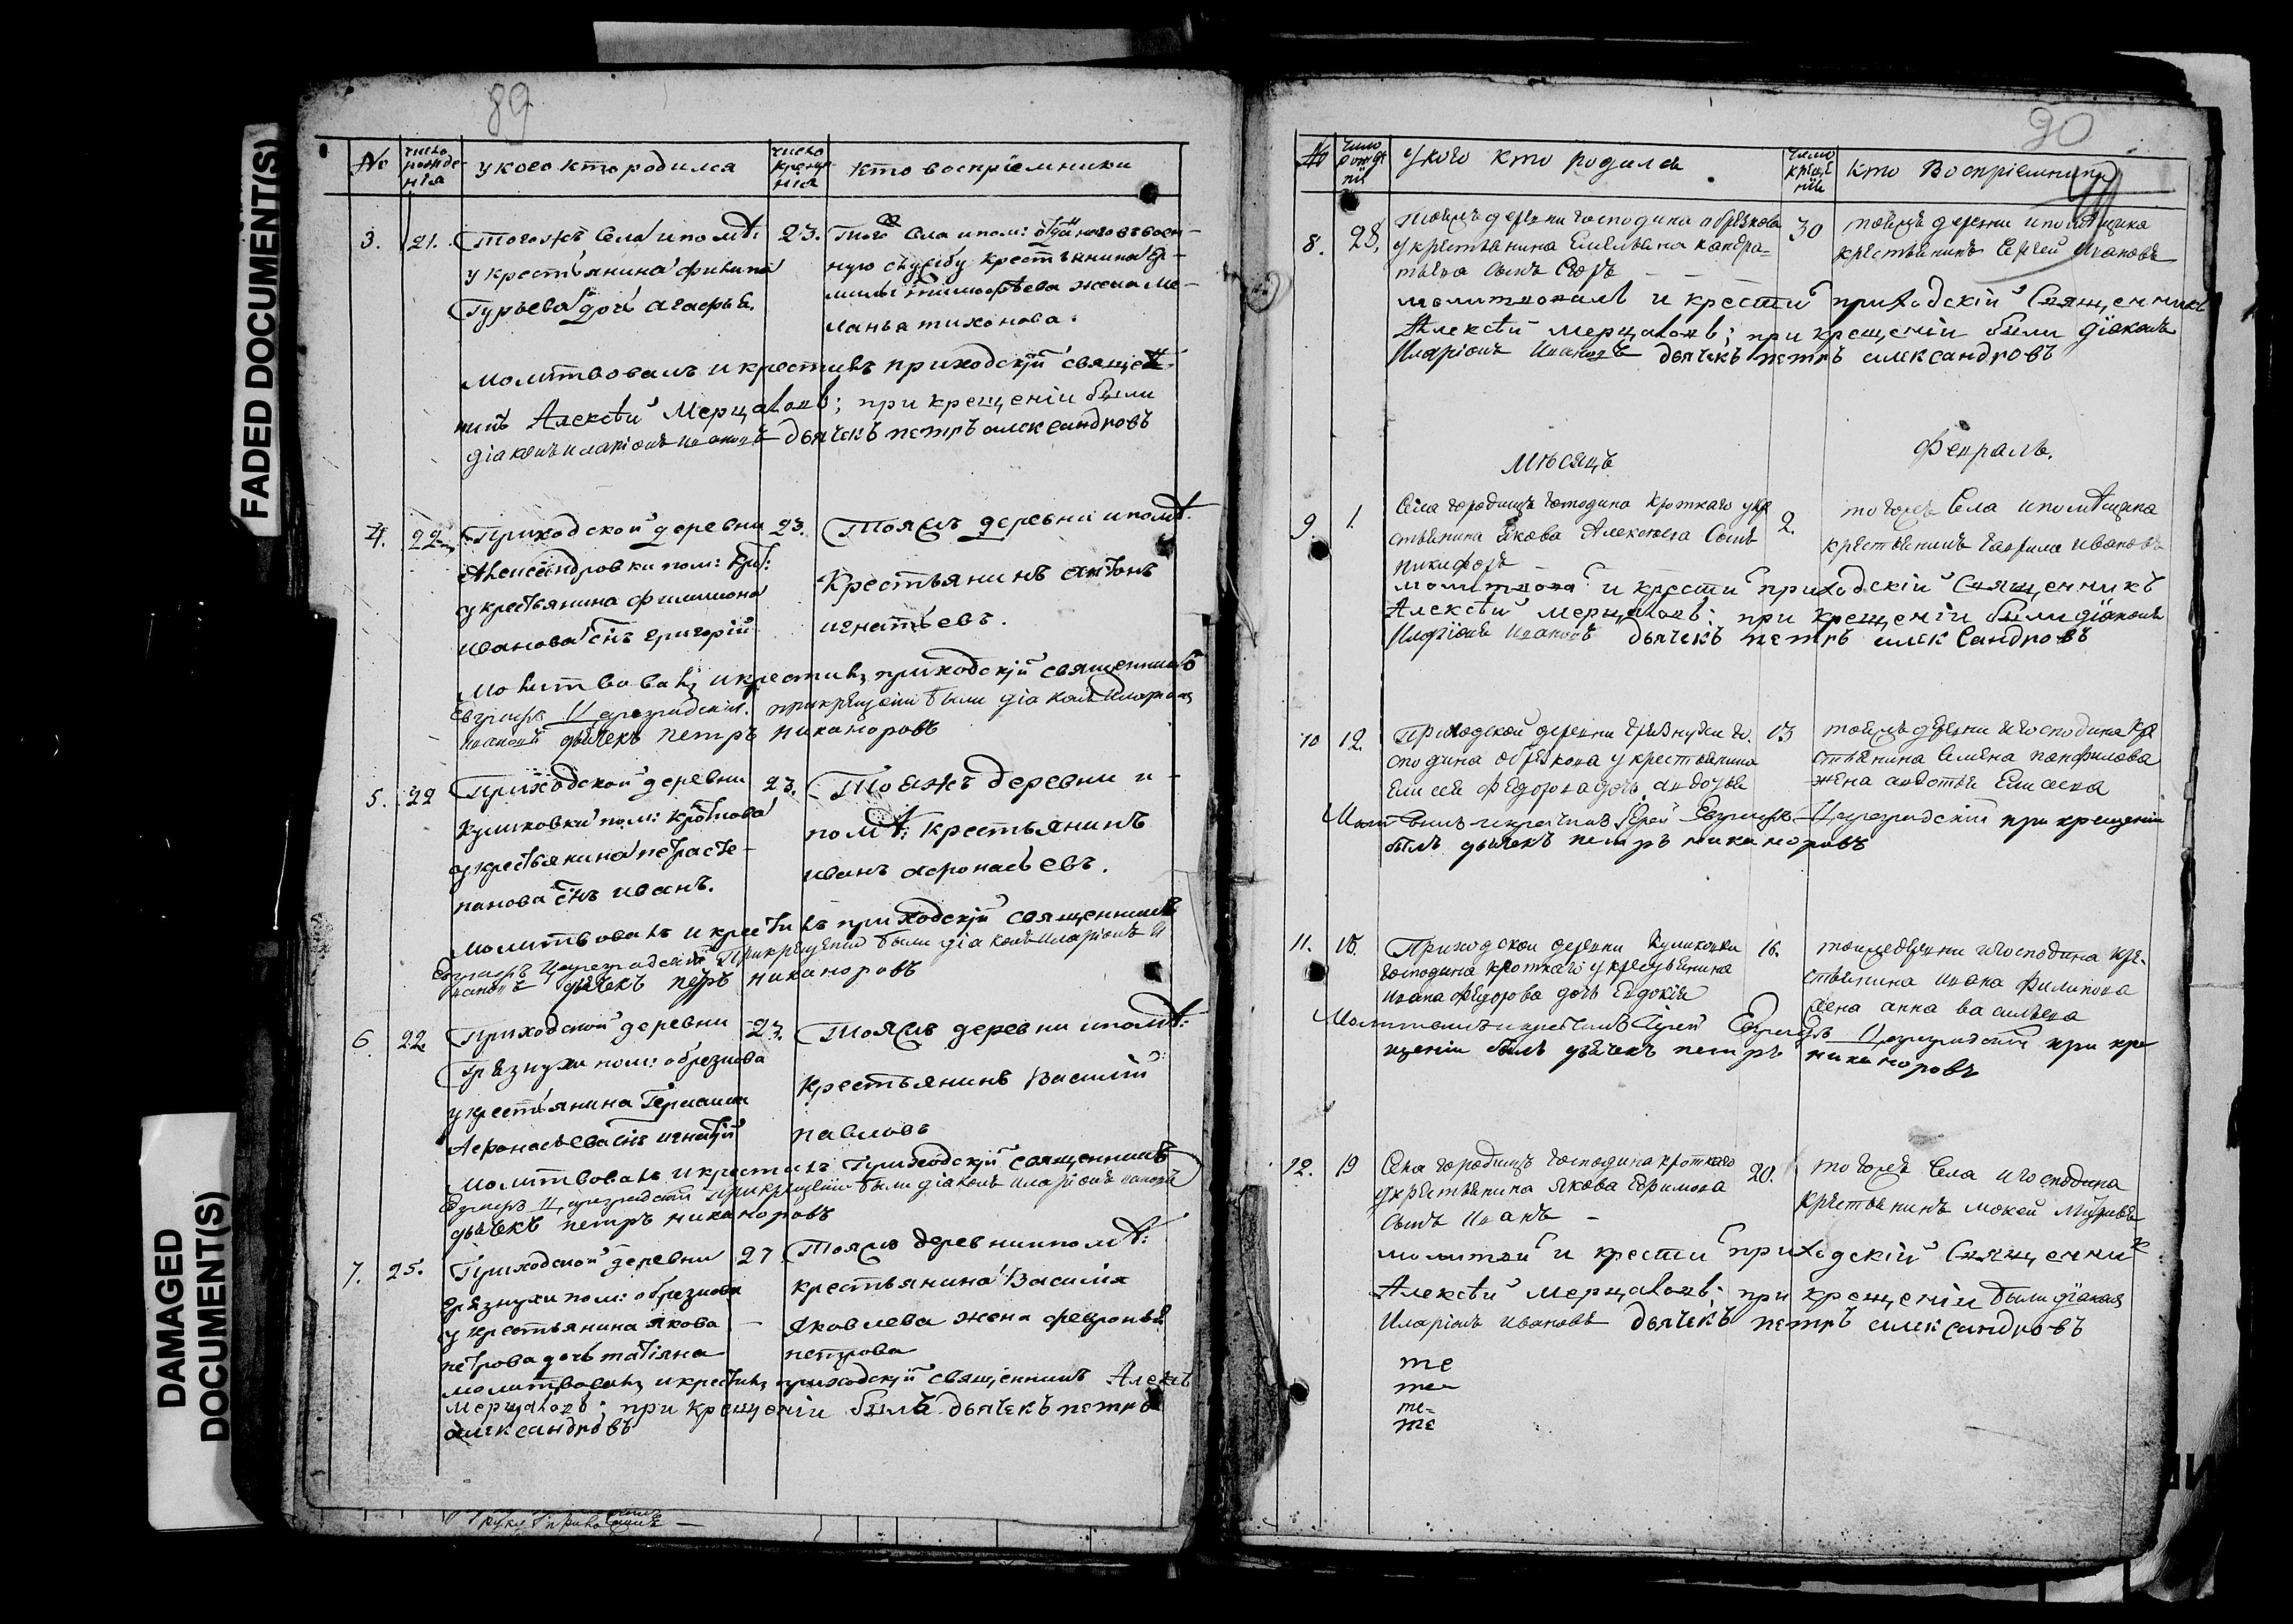 FADED DOCUMENT(S)
DAMAGED
DOCUMENT(S)
89
№ | число рожде-нія | у кого кто родился | число креще-нія | кто воспріемники
3. 21. Тогожъ села и помѣ:
у крестьянина филипа
Гурьева дочь агафья.
23. Того села и пом: отданнаго въ воен-
ную службу крестьянина
тимофѣева жена Ме-
ланья тихонова.
Молитвовалъ и крестилъ приходскій священ-
никъ Алексѣй Мерцаловъ; при крещеніи были
діаконъ иларіонъ ивановъ дьячекъ петръ александровъ
4. 22. Приходской деревни
Александровки пом: крот:
у крестьянина филимона
иванова снъ григорій
23. Тояжъ деревни и помѣ:
Крестьянинъ антонъ
игнатьевъ.
Молитвовалъ и крестилъ приходскій священникъ
Евграфъ Цареградскій. при крещеніи были діаконъ Иларіонъ
ивановъ дьячекъ петръ никаноровъ
5. 22 Приходской деревни
Куликовки пом: кроткова
у крестьянина петра сте-
панова снъ иванъ.
23. Тояжъ деревни и
помѣ: крестьянинъ
иванъ афонасьевъ.
Молитвовалъ и крестилъ приходскій священникъ
Евграфъ Цареградскій При крещеніи были діаконъ иларіонъ и
вановъ дьячекъ петръ никаноровъ
6. 22 Приходской деревни
Грязнухи пом: обрезкова
у крестьянина Герасима
Афонасьева снъ игнатій
23. Тояжъ деревни и помѣ:
крестьянинъ Василій
павловъ
Молитвовалъ и крестилъ приходскій священникъ
Евграфъ Цареградскій при крещеніи были діаконъ иларіонъ ивановъ
дьячекъ петръ никаноровъ
7. 25. Приходской деревни
грязнухи пом: обрезкова
у крестьянина якова
петрова дочь татіяна
27 Тояжъ деревни и помѣ:
крестьянина Василія
Яковлева жена февронья
петрова
молитвовалъ и крестилъ приходскій священникъ Алексѣй
Мерцаловъ; при крещеніи былъ дьячекъ петръ
александровъ
90
№ | число рожде нія | у кого кто родился | число креще нія | кто Воспріемники
8. 28. тоежъ деревни господина обрѣзкова
у крестьянина Емельяна кандра-
тьева сынъ Егоръ
30 тоежъ деревни и помѣщика
крестьянинъ Сергей Ивановъ
молитвовалъ и крестилъ приходскій Священникъ
Алексѣй мерцаловъ; при крещеніи были діаконъ
Иларіонъ Ивановъ дьячекъ петръ александровъ
Мѣсяцъ Февраль.
9. 1. Села городищъ господина кроткаго у кре
стьянина Якова Алексѣева Сынъ
никифоръ
2. тогожъ Села и помѣщика
крестьянинъ гаврила ивановъ
молитвовалъ и крестилъ приходскій Священникъ
Алексѣй мерцаловъ; при крещеніи были діаконъ
Иларіонъ Ивановъ дьячекъ петръ александровъ
10 12. Приходской деревни грязнухи го-
сподина обрѣзкова у крестьянина
Елисея Федорова дочь авдотья
13 тоежъ деревни и господина кре
стьянина Семена панфилова
жена авдотья Елисеева
Молитвовалъ и крестилъ Іерей Евграфъ Цареградскій при крещеніи
былъ дьячекъ петръ никаноровъ
11. 15. Приходской деревни Куликовки
господина кроткаго у крестьянина
ивана Федорова дочь Евдокія
16. тоежъ деревни и господина кре-
стьянина ивана Филипова
жена анна васильева
Молитвовалъ и крестилъ Іерей Евграфъ Цареградскій при кре
щеніи былъ дьячекъ петръ никаноровъ
12. 19 Села городищъ господина кроткаго
у крестьянина Якова Ефимова
Сынъ Иванъ
20. тогожъ Села и господина
Крестьянинъ мокей
молитвовалъ и крестилъ приходскій Священникъ
Алексѣй мерцаловъ; при крещеніи были діаконъ
Иларіонъ Ивановъ дьячекъ петръ александровъ
те
те
те
те